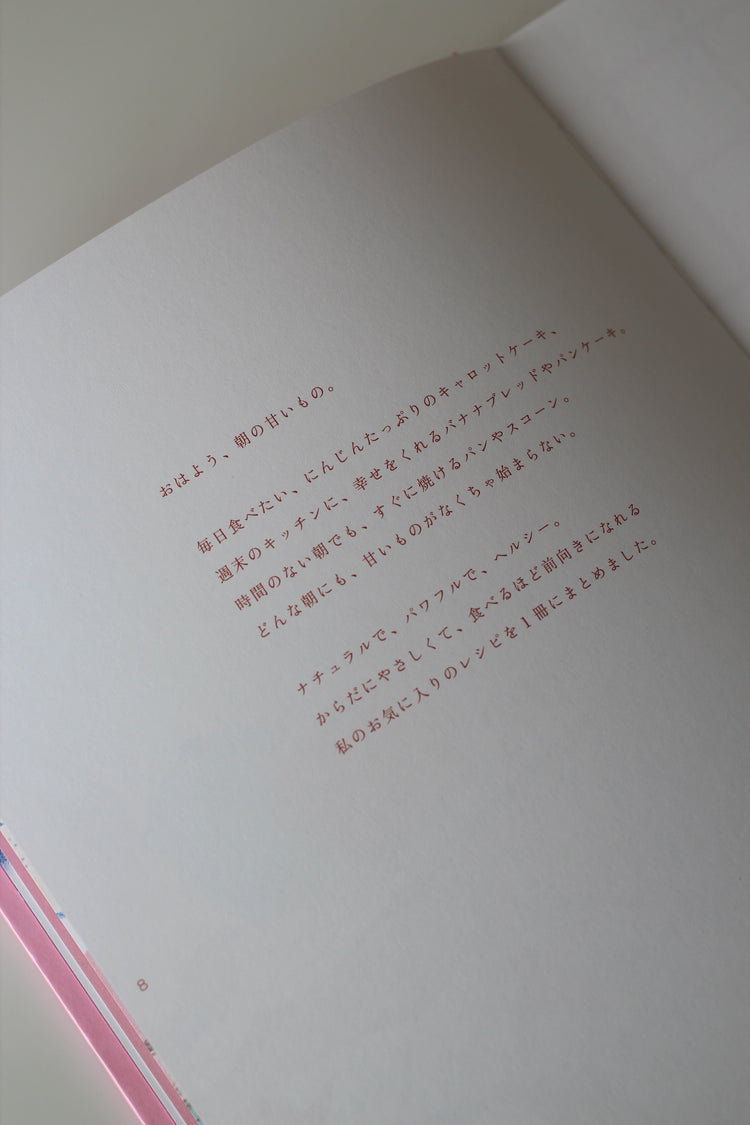 おはよう、朝の甘いもの。
毎日食べたい、にんじんたっぷりのキャロットケーキ、
週末のキッチンに、幸せをくれるバナナブレッドやパンケーキ。
時間のない朝でも、すぐに焼けるパンやスコーン。
どんな朝にも、甘いものがなくちゃ始まらない。
ナチュラルで、パワフルで、ヘルシー。
からだにやさしくて、食べるほど前向きになれる
私のお気に入りのレシピを1冊にまとめました。
8